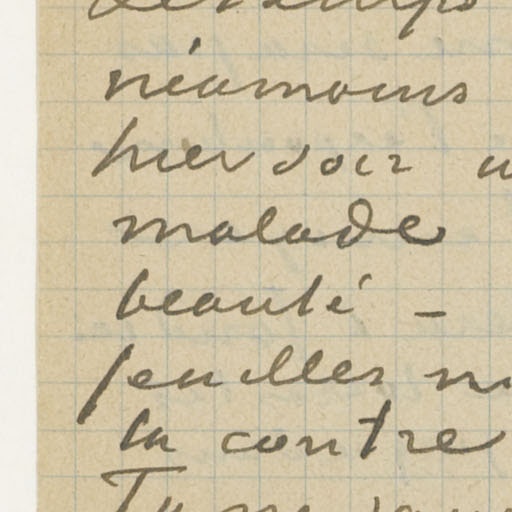 néamoins
hier soir
malade
beauté –
feuilles
la contre